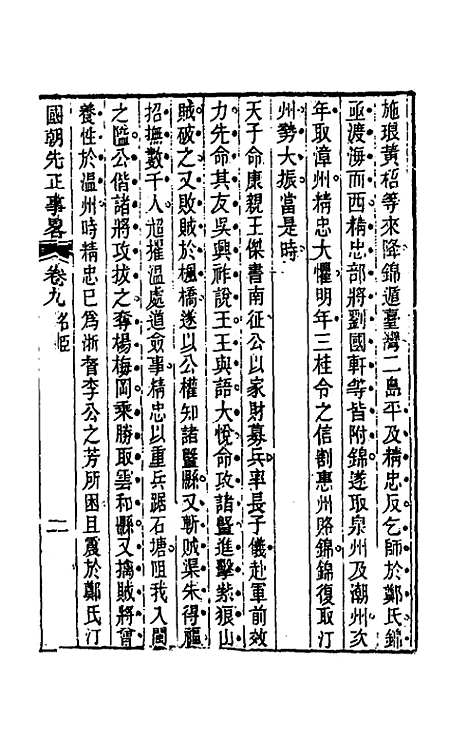 施琅黃梧等來降錦遁臺灣二島平及精忠反乞師於鄭氏錦
亟渡海而西精忠部將劉國軒等皆附錦遂取泉州及潮州次
年取漳州精忠大懼明年三桂令之信割惠州賂錦錦復取汀
州勢大振當是時
天子命康親王傑書南征公以家財募兵率長子儀赴軍前效
力先命其友吳興祚說王王與語大悅命攻諸暨進擊紫狼山
賊破之又敗賊於楓橋遂以公權知諸暨縣又斬賊渠朱得福
招撫數千人超擢溫處道僉事精忠以重兵踞石塘阻我入閩
之隘公偕諸將攻拔之奪楊梅岡乘勝取雲和縣又擒賊將曾
養性於溫州時精忠已為浙督李公之芳所困且震於鄭氏汀
國朝先正事畧 卷九 名姬 二